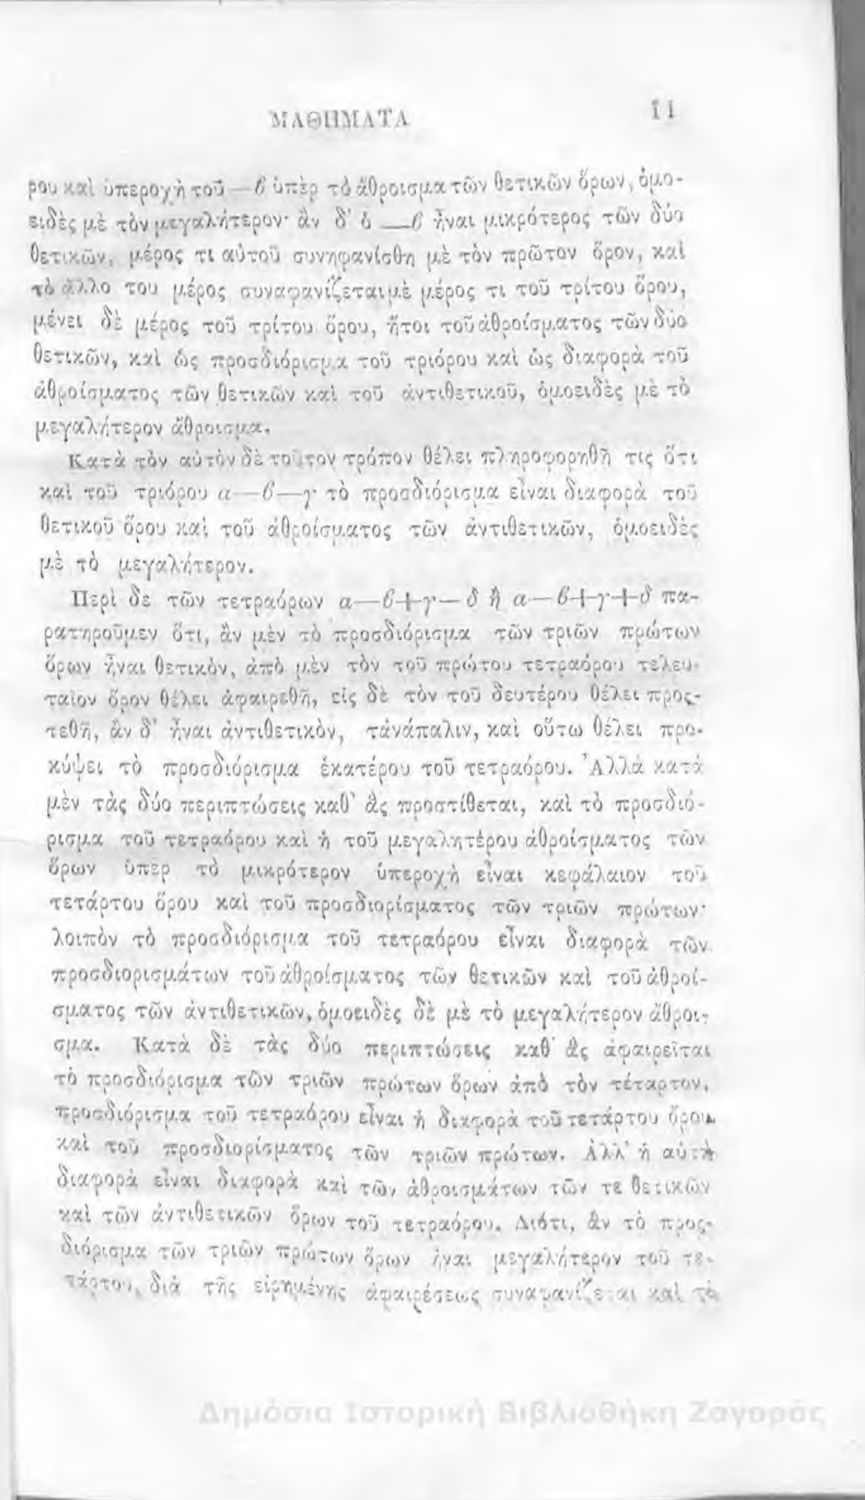 ΜΑΘΗΜΑΤΑ 11
ρου καὶ ὑπεροχὴ τοῦ —β ὑπὲρ τὸ ἄθροισμα τῶν θετικῶν ὅρων, ὁμο-
ειδὲς μὲ τὸν μεγαλήτερον· ἂν δ' ὁ —β ἦναι μικρότερος τῶν δύο
θετικῶν, μέρος τι αὐτοῦ συνηφανίσθη μὲ τὸν πρῶτον ὅρον, καὶ
τὸ ἄλλο του μέρος συναφανίζεται μὲ μέρος τι τοῦ τρίτου ὅρου,
μένει δὲ μέρος τοῦ τρίτου ὅρου, ἤτοι τοῦ ἀθροίσματος τῶν δύο
θετικῶν, καὶ ὡς προσδιόρισμα τοῦ τριόρου καὶ ὡς διαφορὰ τοῦ
ἀθροίσματος τῶν θετικῶν καὶ τοῦ ἀντιθετικοῦ, ὁμοειδὲς μὲ τὸ
μεγαλήτερον ἄθροισμα.
Κατὰ τὸν αὐτὸν δὲ τοῦτον τρόπον θέλει πληροφορηθῆ τις ὅτι
καὶ τοῦ τριόρου α—β—γ τὸ προσδιόρισμα εἶναι διαφορὰ τοῦ
θετικοῦ ὅρου καὶ τοῦ ἀθροίσματος τῶν ἀντιθετικῶν, ὁμοειδὲς
μὲ τὸ μεγαλήτερον.
Περὶ δὲ τῶν τετραόρων α—β+γ—δ ἢ α—β+γ+δ πα-
ρατηροῦμεν ὅτι, ἂν μὲν τὸ προσδιόρισμα τῶν τριῶν πρώτων
ὅρων ἦναι θετικὸν, ἀπὸ μὲν τὸν τοῦ πρώτου τετραόρου τελευ-
ταῖον ὅρον θέλει ἀφαιρεθῆ, εἰς δὲ τὸν τοῦ δευτέρου θέλει προς-
τεθῆ, ἂν δ' ἦναι ἀντιθετικὸν, τἀνάπαλιν, καὶ οὕτω θέλει προ-
κύψει τὸ προσδιόρισμα ἑκατέρου τοῦ τετραόρου. Ἀλλὰ κατὰ
μὲν τὰς δύο περιπτώσεις καθ' ἃς προστίθεται, καὶ τὸ προσδιό-
ρισμα τοῦ τετραόρου καὶ ἡ τοῦ μεγαλητέρου ἀθροίσματος τῶν
ὅρων ὑπὲρ τὸ μικρότερον ὑπεροχὴ εἶναι κεφάλαιον τοῦ
τετάρτου ὅρου καὶ τοῦ προσδιορίσματος τῶν τριῶν πρώτων·
λοιπὸν τὸ προσδιόρισμα τοῦ τετραόρου εἶναι διαφορὰ τῶν
προσδιορισμάτων τοῦ ἀθροίσματος τῶν θετικῶν καὶ τοῦ ἀθροί-
σματος τῶν ἀντιθετικῶν, ὁμοειδὲς δὲ μὲ τὸ μεγαλήτερον ἄθροι-
σμα. Κατὰ δὲ τὰς δύο περιπτώσεις καθ' ἃς ἀφαιρεῖται
τὸ προσδιόρισμα τῶν τριῶν πρώτων ὅρων ἀπὸ τὸν τέταρτον,
προσδιόρισμα τοῦ τετραόρου εἶναι ἡ διαφορὰ τοῦ τετάρτου ὅρου
καὶ τοῦ προσδιορίσματος τῶν τριῶν πρώτων. Ἀλλ' ἡ αὐτὴ
διαφορὰ εἶναι διαφορὰ καὶ τῶν ἀθροισμάτων τῶν τε θετικῶν
καὶ τῶν ἀντιθετικῶν ὅρων τοῦ τετραόρου. Διότι, ἂν τὸ προς-
διόρισμα τῶν τριῶν πρώτων ὅρων ἦναι μεγαλήτερον τοῦ τε-
τάρτου, διὰ τῆς εἰρημένης ἀφαιρέσεως συναφανίζεται καὶ τὸ
Δημόσια Ιστορική Βιβλιοθήκη Ζαγοράς